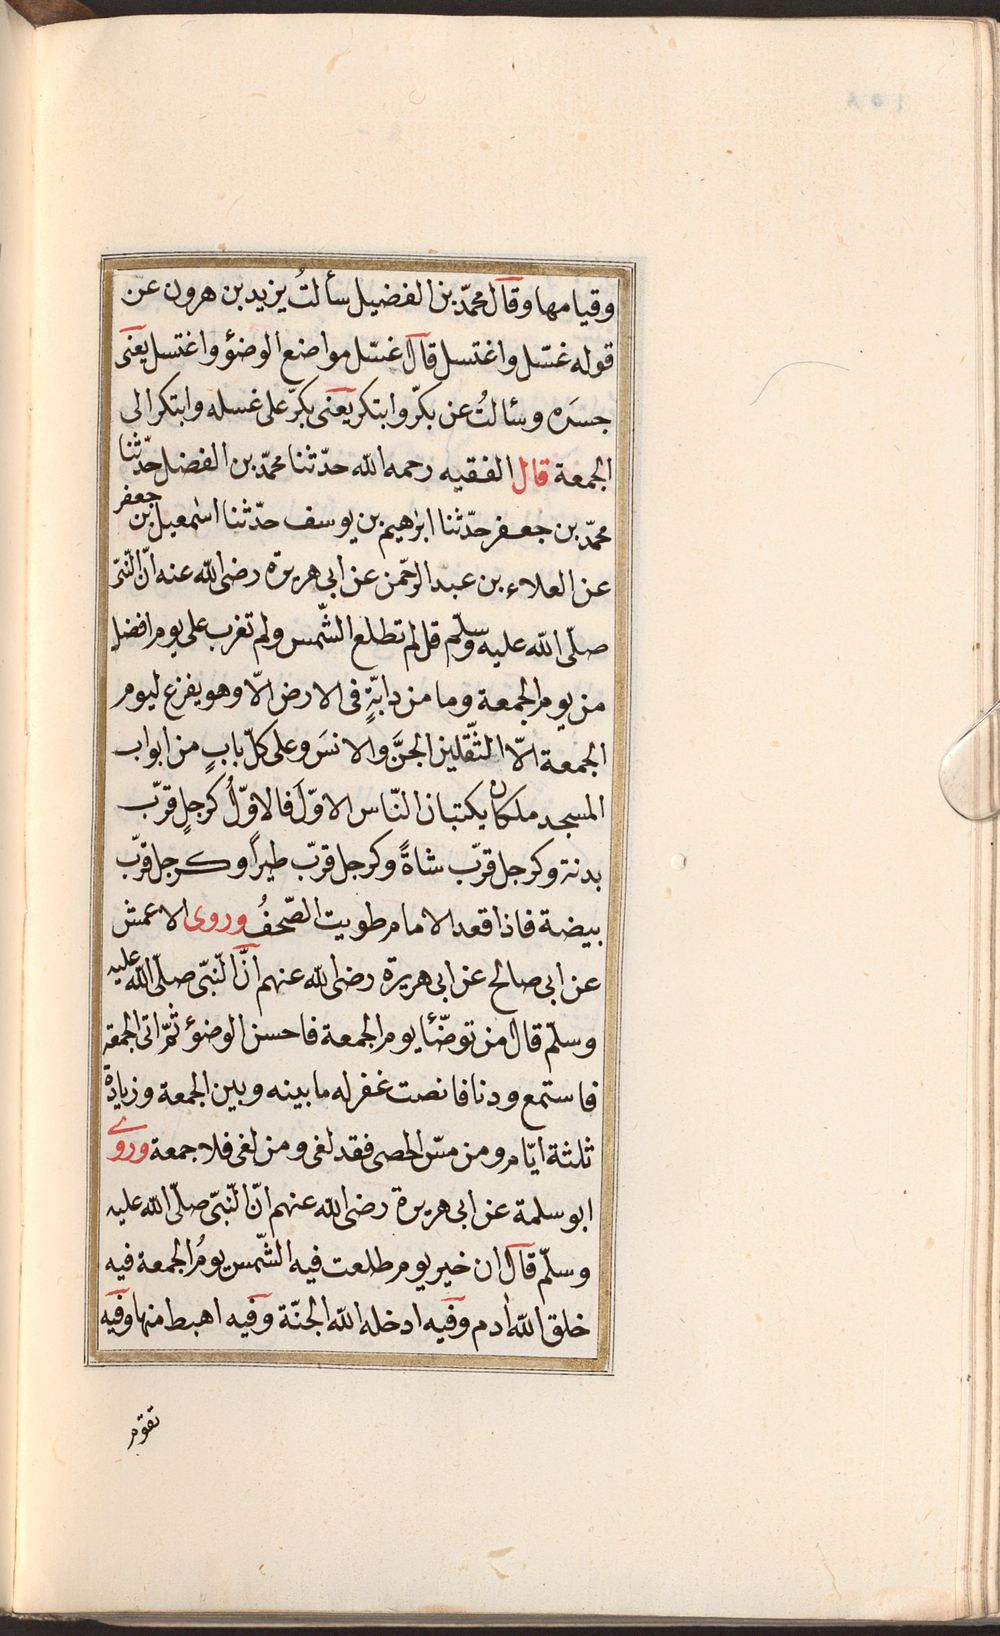 وقيامها وقال محمّد بن الفضيل سألتُ يزيد بن هرون عن
قوله غسّل واغتسل قال اغسّل مواضع الوضؤ واغتسل يعنى
جسَده وسألتُ عن بكّر وابتكر يعنى بكرّ على غسله وابتكر الى
الجمعة قال الفقيه رحمه اللّه حدّثنا محمّد بن الفضل حدّثنا
محمّد بن جعفر حدّثنا ابرٰهيم بن يوسف حدّثنا اسٰمعيل بن جعفر
عن العلاء بن عبد الرحّمن عن ابى هريرة رضى اللّه عنه انّ النّبىّ
صلّى اللّه عليه وسلّم قل لم تطلع الشّمس ولم تغرب على يوم افضل
من يوم الجمعة وما من دابّةٍ فى الارض الّا وهو يفزع ليوم
الجمعة الّا الثّقلين الجنَّ والانسَ وعلى كلّ بابٍ من ابواب
المسجد ملكان يكتبان النّاس الاوّلَ فالاوّلُ كرجلٍ قرّب
بدنة وكرجل قرّب شاةً وكرجل قرّب طيراً وكرجل قرّب
بيضة فاذا قعد الامام طويت الصّحفُ وروى الاعمش
عن ابى صالح عن ابى هريرة رضى اللّه عنهم انَّ النّبىّ صلّى اللّه عليه
وسلّم قال من توضّأ يوم الجمعة فاحسن الوضؤ ثمّ اتى الجمعة
فاستمع ودنا فانصت غفر له ما بينه وبين الجمعة وزيادة
ثلثة ايّام ومن مسّ الحصى فقد لغى ومن لغى فلا جمعة وروى
ابو سلمة عن ابى هريرة رضى اللّه عنهم انّ النّبىّ صلّى اللّه عليه
وسلّم قال ان خير يوم طلعت فيه الشّمس يومُ الجمعة فيه
خلق اللّه اٰدم وفيه ادخله اللّه الجنّة وفيه اهبط منها وفيه
تقوم